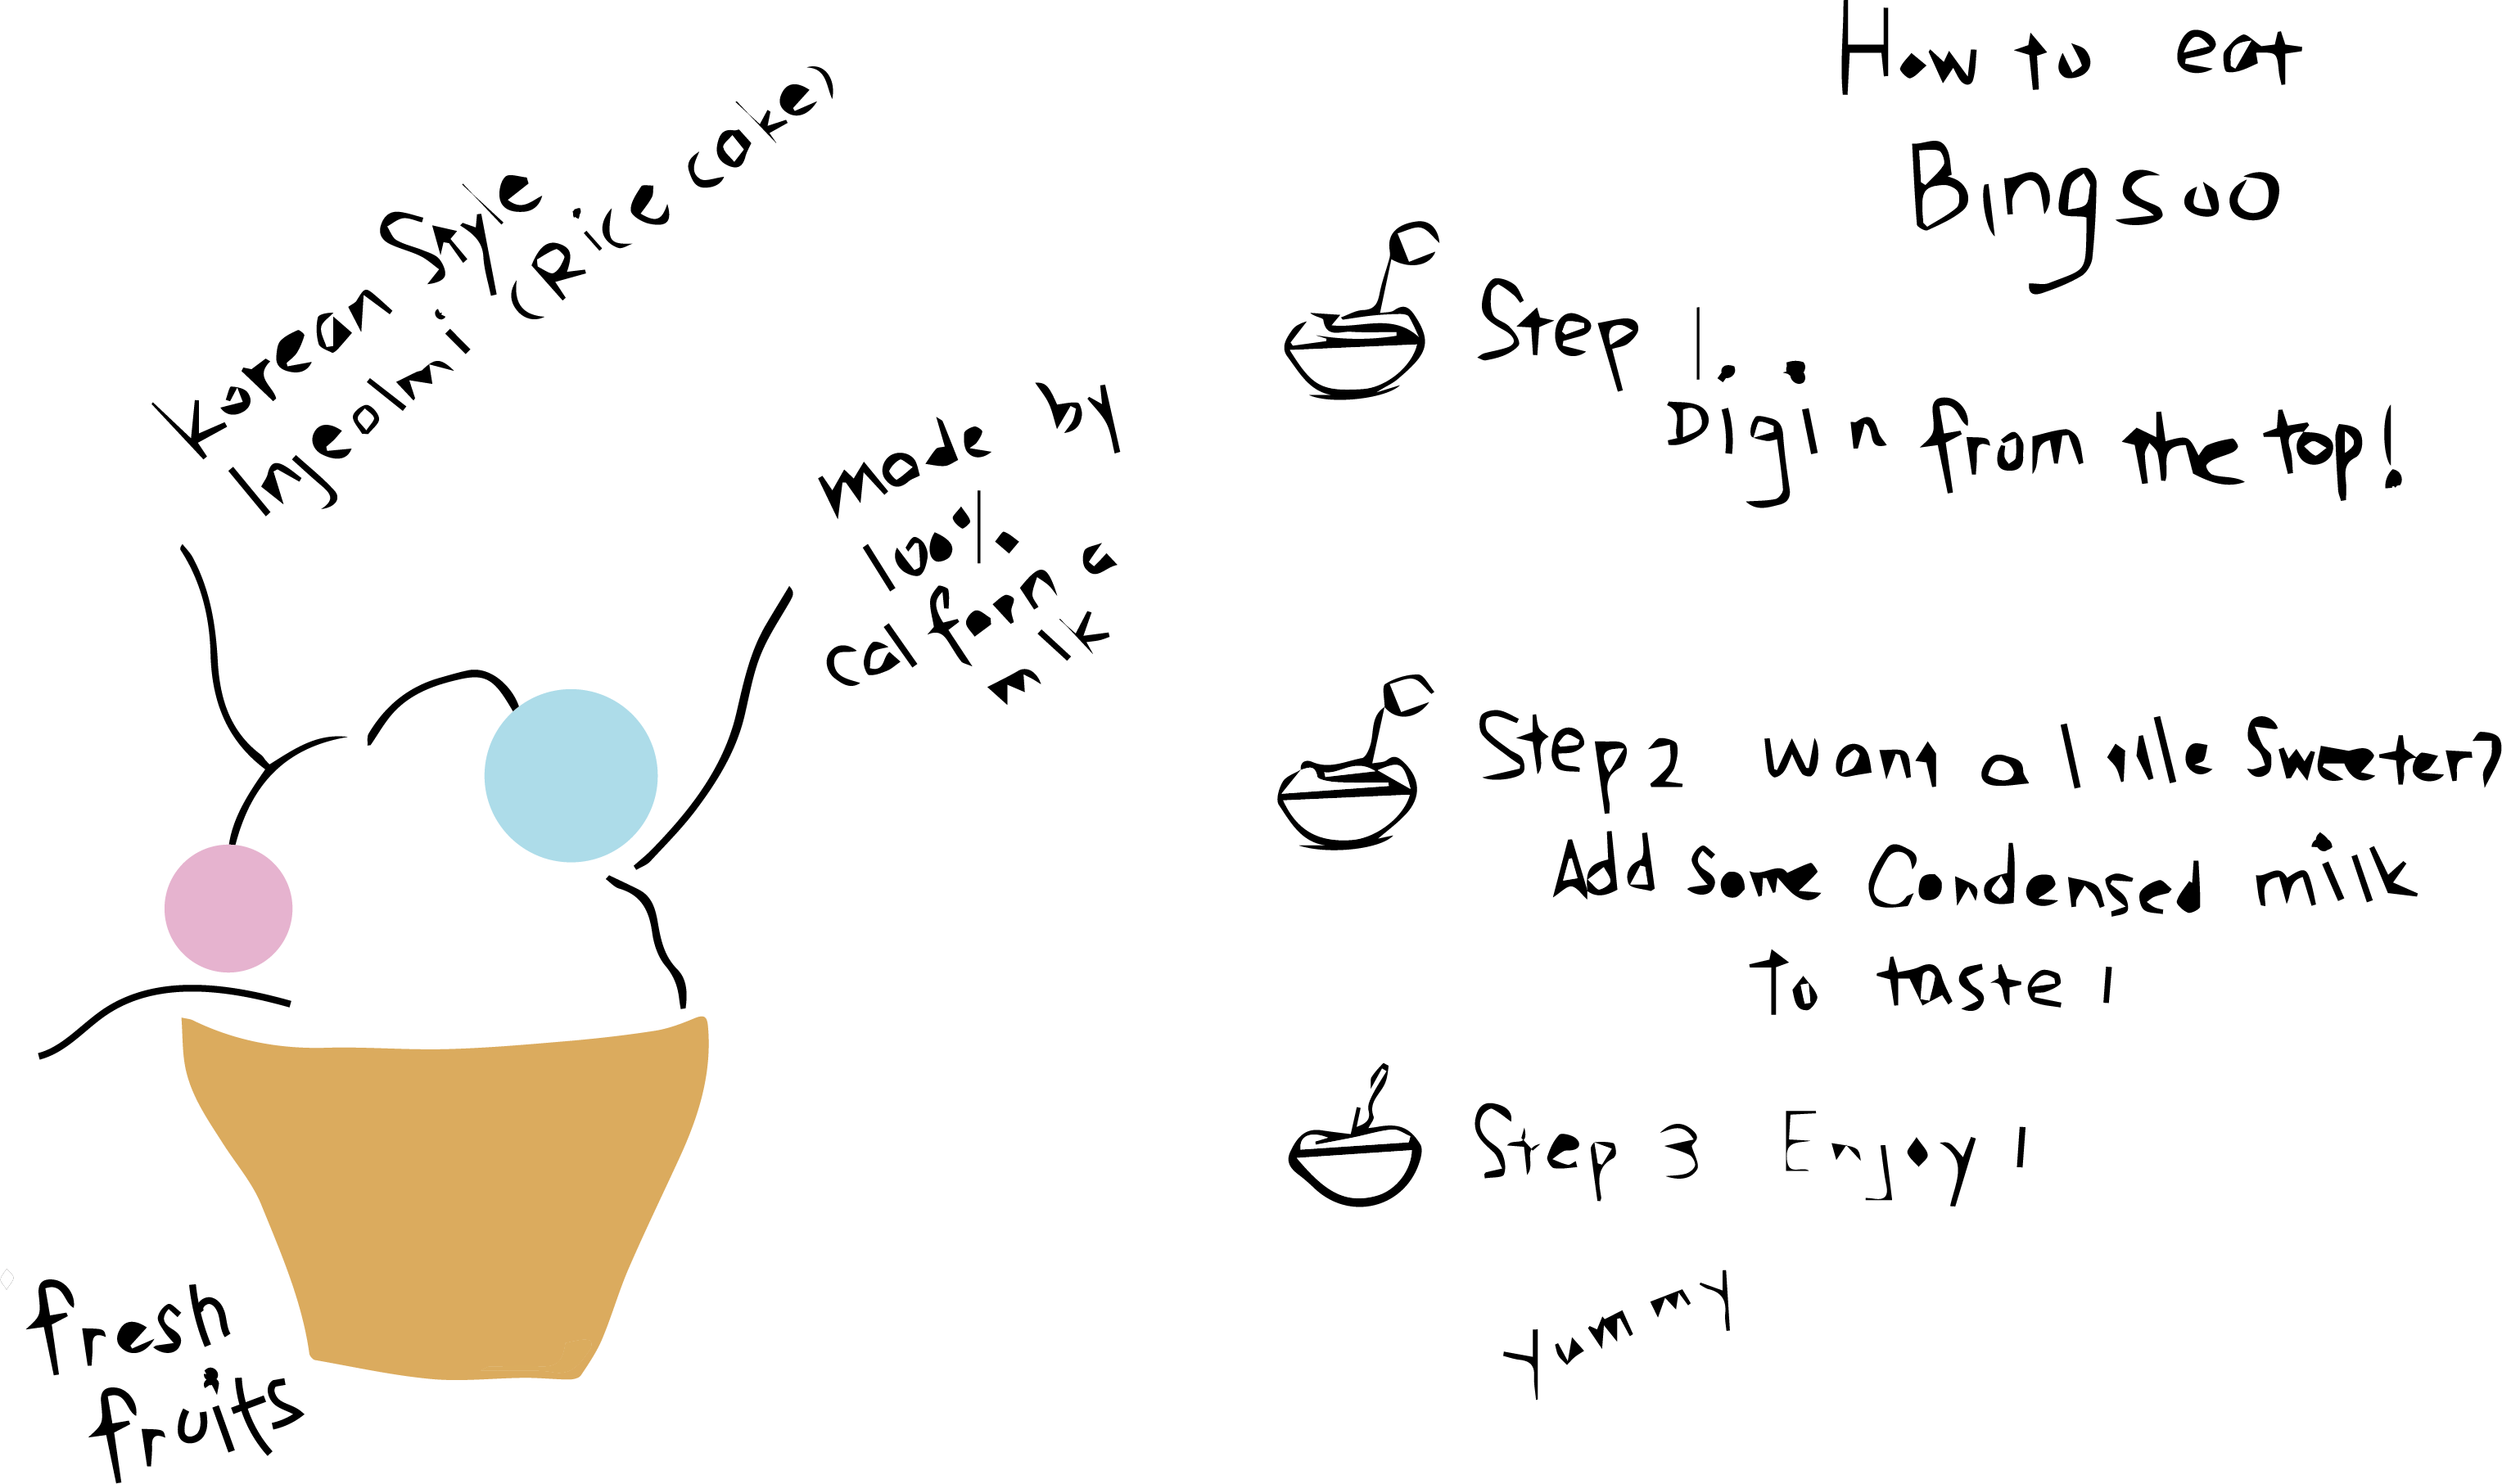 Korean Style
Injeolmi (Rice cake)
made by
100%
Califarna
milk
fresh
fruits
How to eat
Bingsoo
Step 1. .
Dig in from the top!
Step 2 wann a little Sweeter?
Add some Condensed milk
To taste!
Step 3 Enjoy!
Yummy